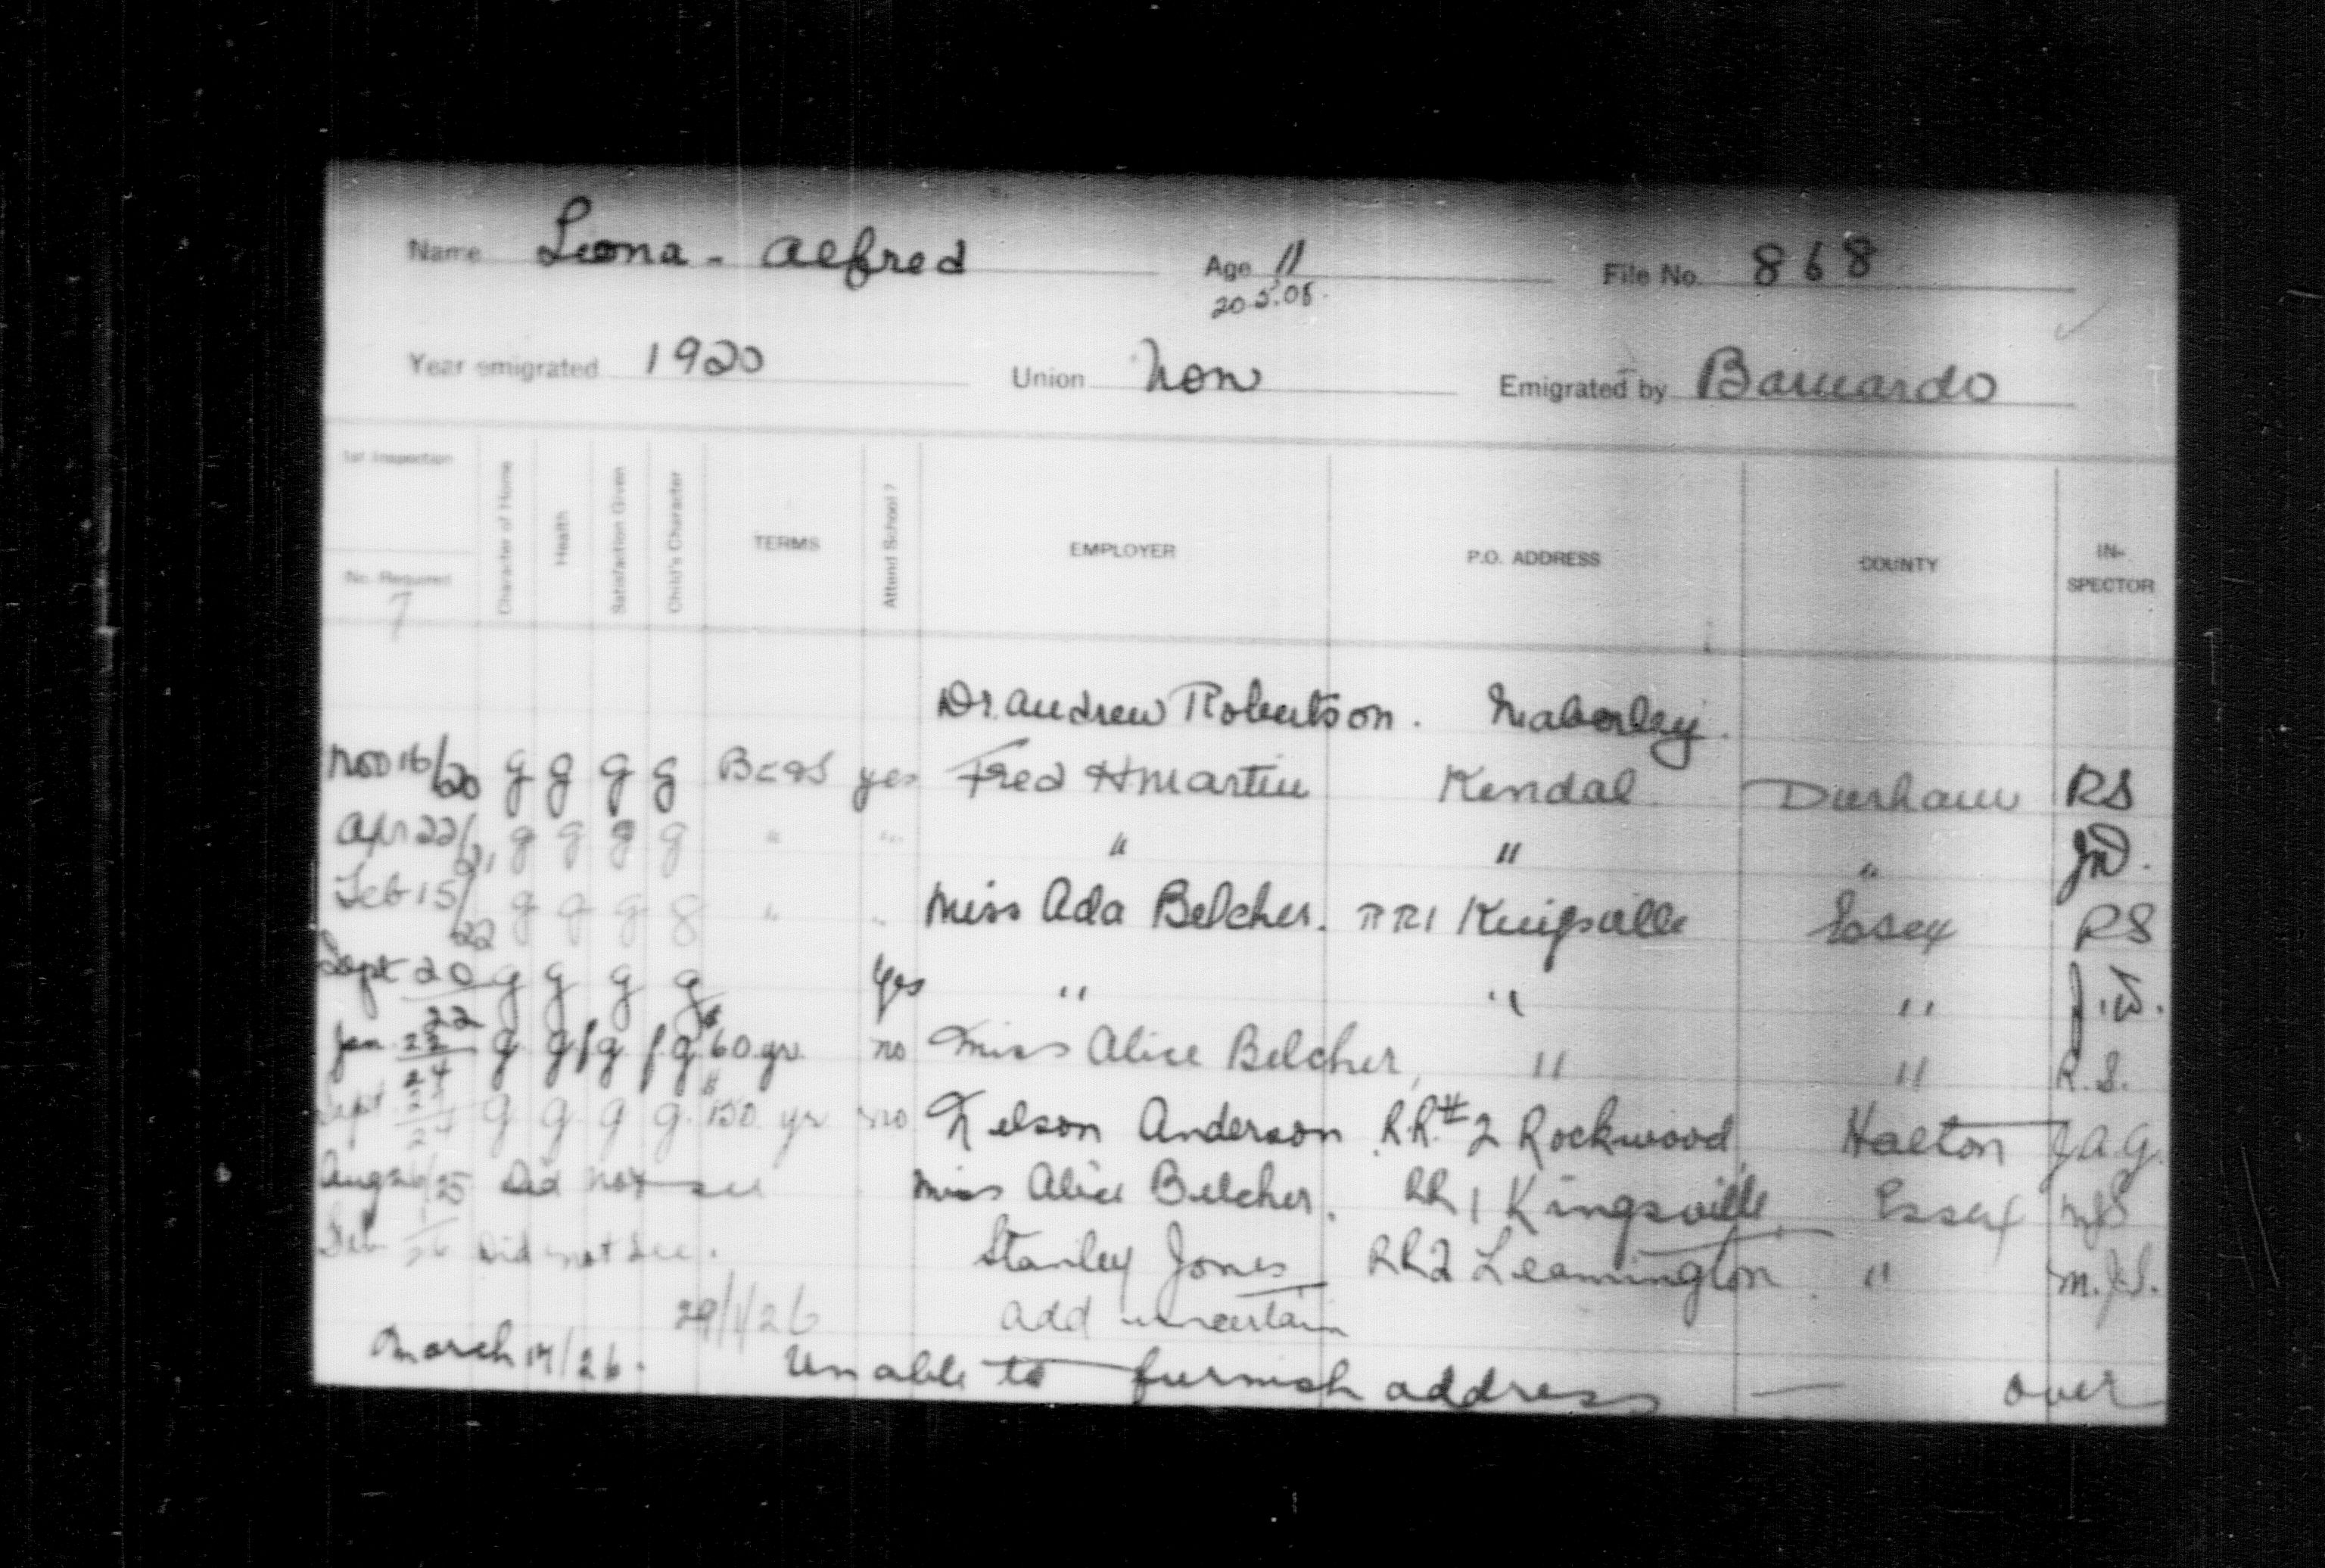 Name Leona - Alfred Age 11 File No. 868
20.5.08.
Year emigrated 1920 Union Non Emigrated by Barnardo
1st Inspection
No. Required
7
Character of Home Health Satisfaction Given Child's Character TERMS Attend School? EMPLOYER P.O. ADDRESS COUNTY IN-SPECTOR
Dr. Andrew Robertson. Maberley.
Nov 16/20 g g g g B c & S yes Fred H Martin Kendal Durham RS
Apr 22/21 g g g g " " " " "
Feb 15/22 g g g g " " Miss Ada Belcher. RR1 Kingsville Essex RS
Sept 20/22 g g g g Yes " " "
Jan. 23/24 g g fg fg $60 yr. no Miss Alice Belcher, " " R.S.
Sept. 24 g g. g g. $150 yr no Nelson Anderson R.R.#2 Rockwood Halton J.A.G.
Aug 26/25 Did not see Miss Alice Belcher. RR1 Kingsville Essex MJS
Feb /26 Did not see. Stanley Jones RR2 Leamington " M.J.S.
29/1/26 add uncertain
March 17/26. Unable to furnish address — over